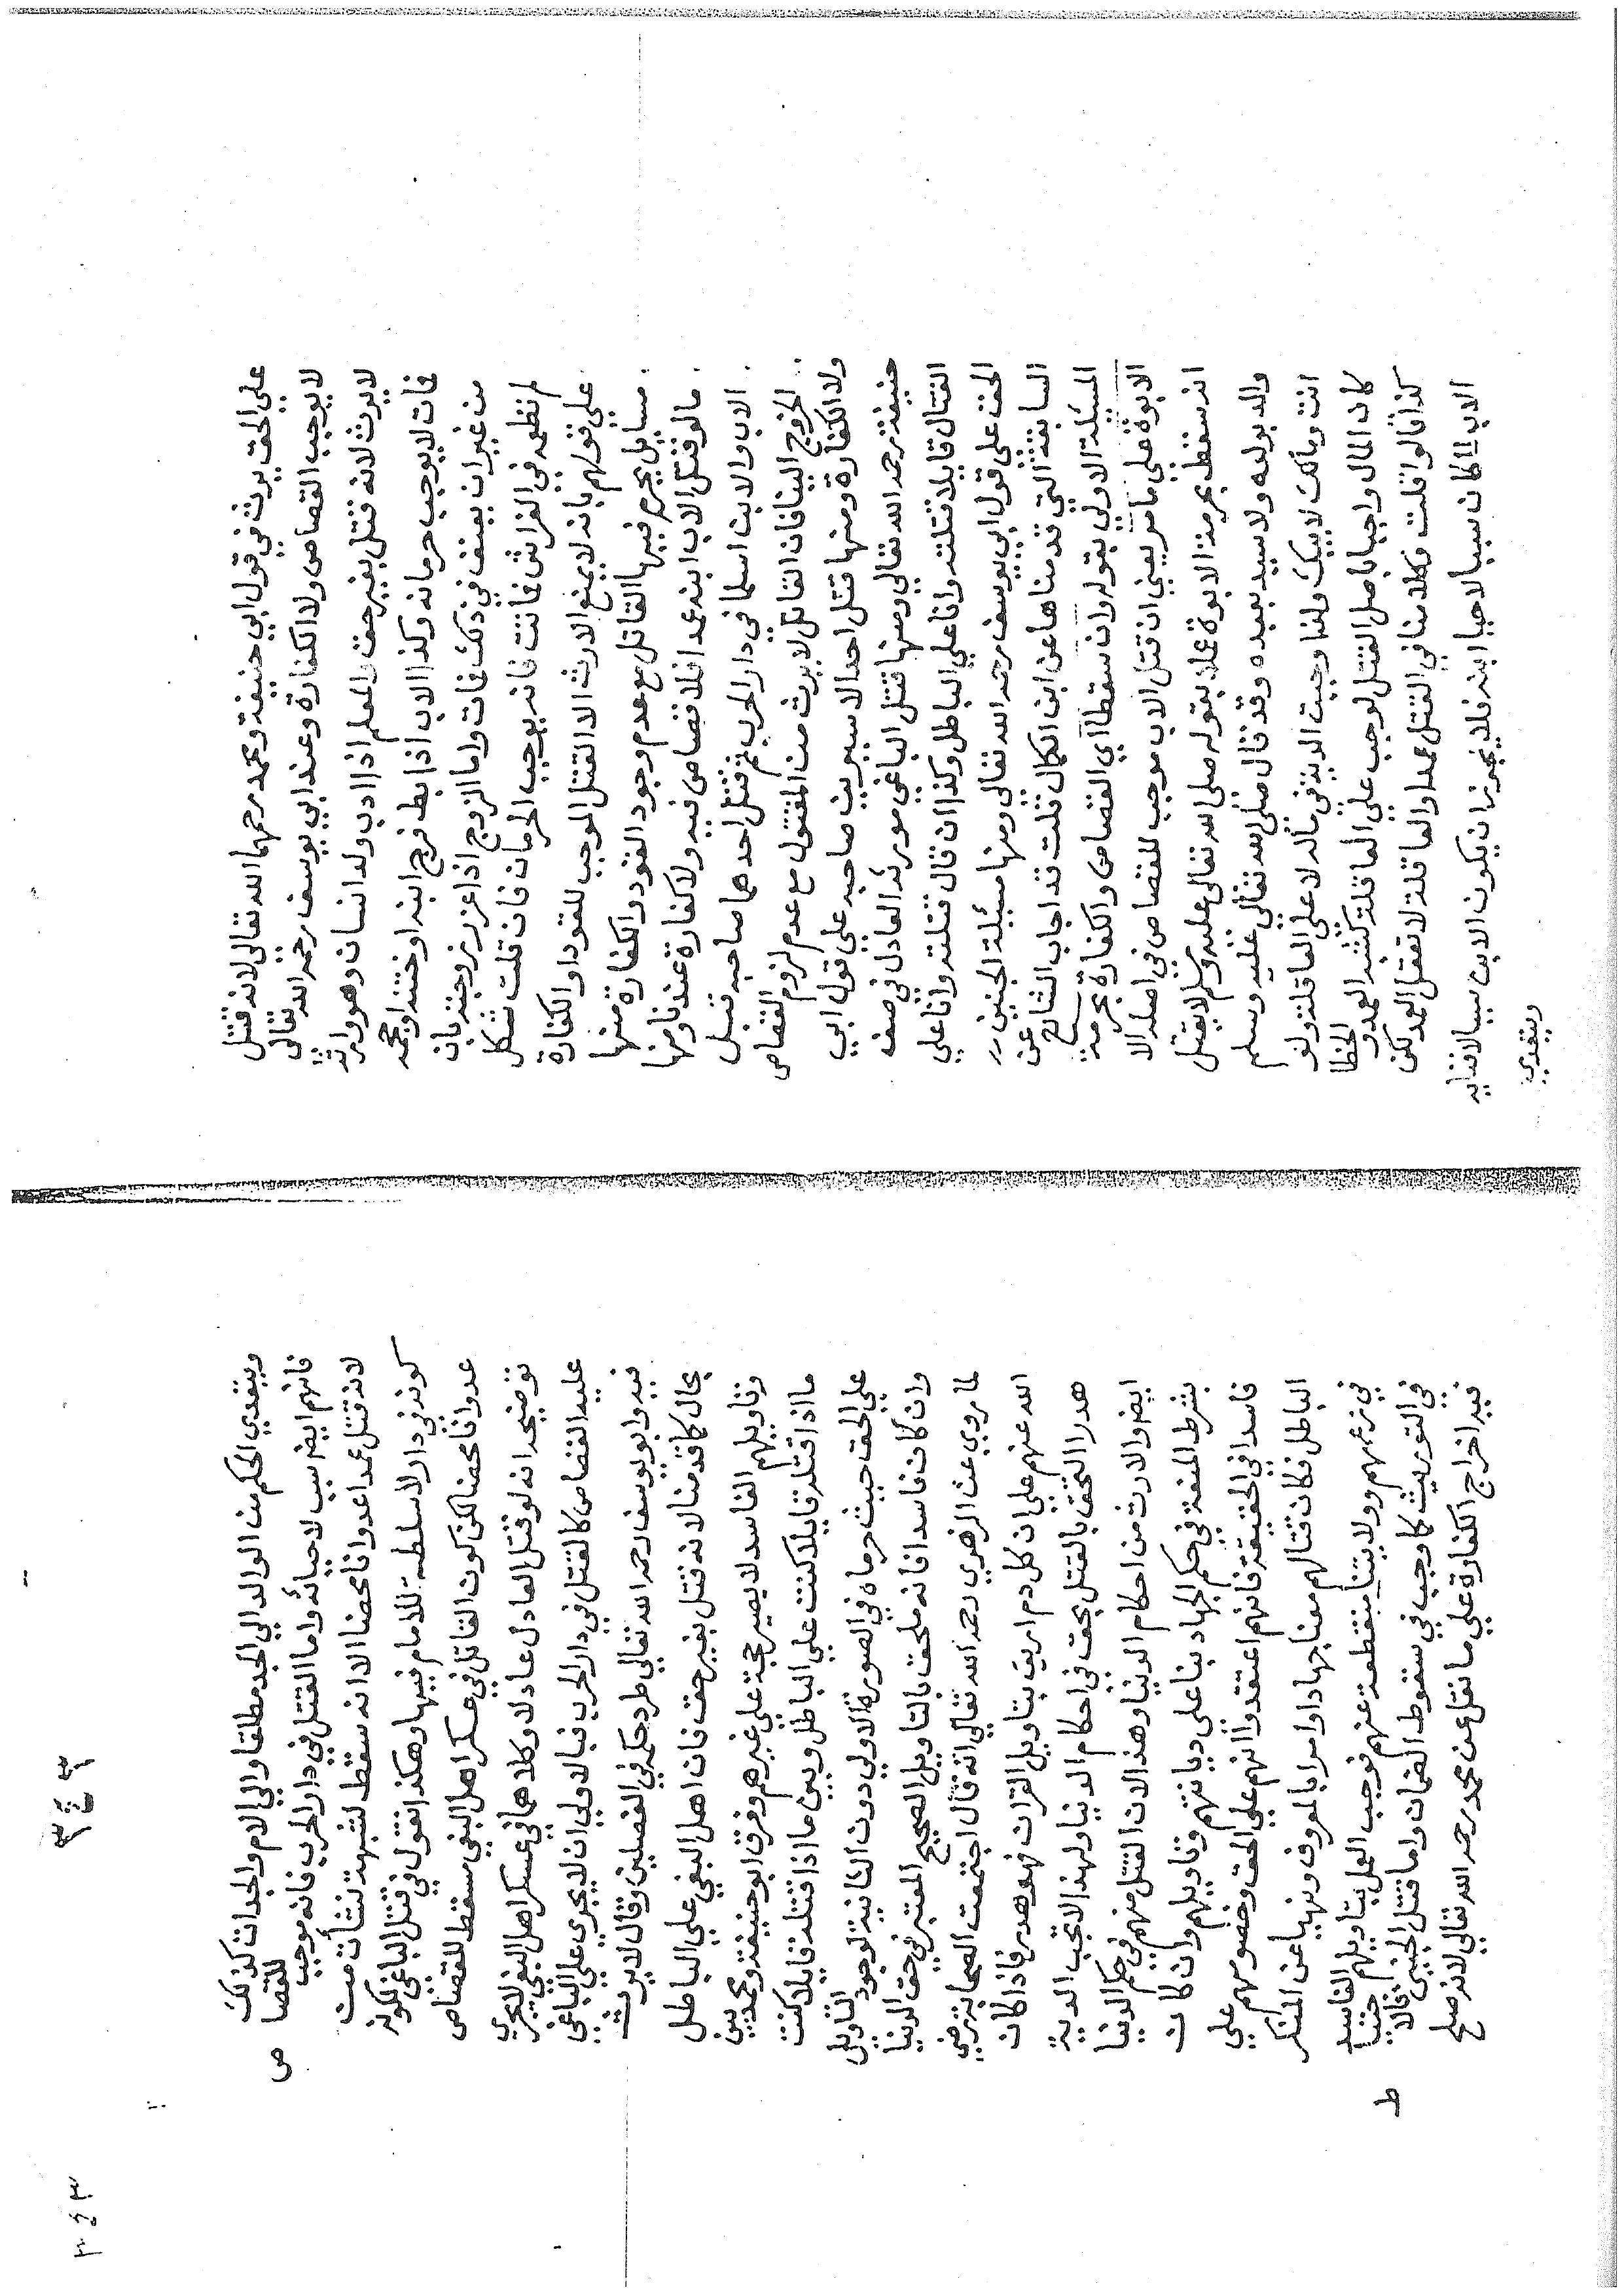 على الحق يرث في قول ابي حنيفة ومحمد رحمهما الله تعالى لانه قتل
لا يوجب القصاص ولا الكفارة وعند ابي يوسف رحمه الله تعالى
لا يرث لانه قتل بغير حق والمعلم اذا ادب ولد انسان وهو وارثه
فات لا يوجب حرمانه وكذا الاب اذا بط قرح ابنه او ختنه او حجمه
من غير ان يعنف في ذلك فات واما الزوج اذا عزر زوجته بان
لم تطعه في الفراش فاتت فانه يوجب الحرمان فان قلت شكل
على قولهم بانه لا يمنع الارث الا القتل الموجب للقود او الكفارة
مسايل يحرم فيها القاتل مع عدم وجود القود والكفارة منها
ما لو قتل الاب ابنه عمدا فلا قصاص فيه ولا كفارة عندنا ومنها
الاب والابن اسلما في دار الحرب ثم قتل احدهما صاحبه قبل
الخروج الينا فان القاتل لا يرث من المقتول مع عدم لزوم القصاص
ولا الكفارة ومنها قتل احد الاسيرين صاحبه على قول ابي
حنيفة رحمه الله تعالى ومنها قتل الباغي مورثه العادل في صف
القتال قايلا قتلته وانا على الباطل وكذا ان قال قتلته وانا على
الحق على قول ابي يوسف رحمه الله تعالى ومنها مسئلة الجنين
السابقة التي قدمناها عن ابن الكمال قلت قد اجاب الشارح عن
المسئلة الاولى بقوله وان سقطا اي القصاص والكفارة بحرمة
الابوة على ما مر يعني ان قتل الاب موجب للقصاص في اصله الا
انه سقط بحرمة الابوة عملا بقوله صلى الله تعالى عليه وسلم لا يقتل
والد بولده ولا سيد بعبده وقد قال صلى الله تعالى عليه وسلم
انت ومالك لابيك ولذا وجبت الدية في ماله لا على العاقلة ولو
كان المال واجبا باصل القتل لوجب على العاقلة كشبه العمد والخطا
كذا قالوا قلت وكلامنا في القتل عمدا والعاقلة لا تعقل العمد لكن
الاب لما كان سببا لاحيا ابنه فلا يجوز ان يكون الابن سببا لافنايه
ويتعدى
ويتعدى الحكم من الوالد الى الجد مطلقا والى الام والجدات كذلك
فانهم ايضا سبب لاحيائه واما القتل في دار الحرب فانه موجب للقصاص
لانه قتل عمدا عدوانا محضا الا انه سقط لشبهة نشأت من
كونه في دار لا سلطنة للامام فيها وهكذا نقول في قتل الباغي لكونه
عدوانا محضا لكن كون القاتل في عسكر اهل البغي مسقط للقصاص
توضيحه انه لو قتل العادل عادلا وكلاهما في عسكر اهل البغي لا يجري
عليه القصاص كالقتل في دار الحرب فبالاولى ان لا يجري على الباغي
فيه وابو يوسف رحمه الله تعالى طرد حكمه في الفصلين وقال لا يرث
بحال كما قدمنا لانه قتل بغير حق فان اهل البغي على الباطل
وتاويلهم الفاسد لا يصير حجة على غيرهم وفرق ابو حنيفة ومحمد بين
ما اذا قتله قايلا كنت على الباطل وبين ما اذا قتله قايلا كنت
على الحق حيث حرماه في الصورة الاولى دون الثانية لوجود التاويل
وان كان فاسدا فانه ملحق بالتاويل الصحيح المعتبر في حق الدنيا
لما روي عن الزهري رحمه الله تعالى انه قال اجتمعت الصحابة رضي
الله عنهم على ان كل دم اريق بتاويل القران فهو هدر فاذا كان
هدرا التحق بالقتل بحق في احكام الدنيا ولهذا لا تجب الدية
ايضا والارث من احكام الدنيا وهذا لان القتل منهم في حكم الدنيا
بشرط المنعة في حكم الجهاد بنا على ديانتهم وتاويلهم وان كان
فاسدا في الحقيقة فانهم اعتقدوا انهم على الحق وخصومهم على
الباطل فكان قتالهم معنا جهادا وامرا بالمعروف ونهيا عن المنكر
في زعمهم وولايتنا منقطعة عنهم فوجب العمل بتاويلهم الفاسد
في التوريث كما وجب في سقوط الضمان واما قتل الجنين
فيه اخراج الكفارة على ما نقل عن محمد رحمه الله تعالى لانه صلح